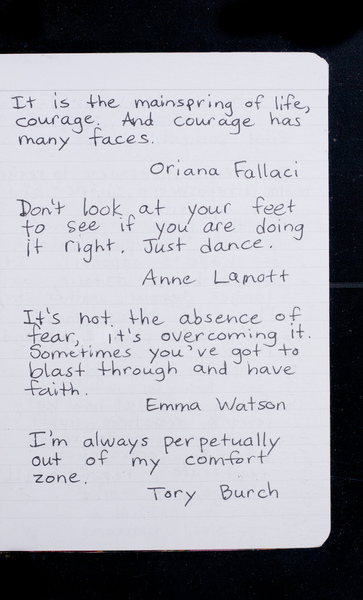 It is the mainspring of life,
courage. And courage has
many faces.
Oriana Fallaci
Don't look at your feet
to see if you are doing
it right. Just dance.
Anne Lamott
It's not the absence of
fear, it's overcoming it.
Sometimes you've got to
blast through and have
faith.
Emma Watson
I'm always perpetually
out of my comfort
zone.
Tory Burch